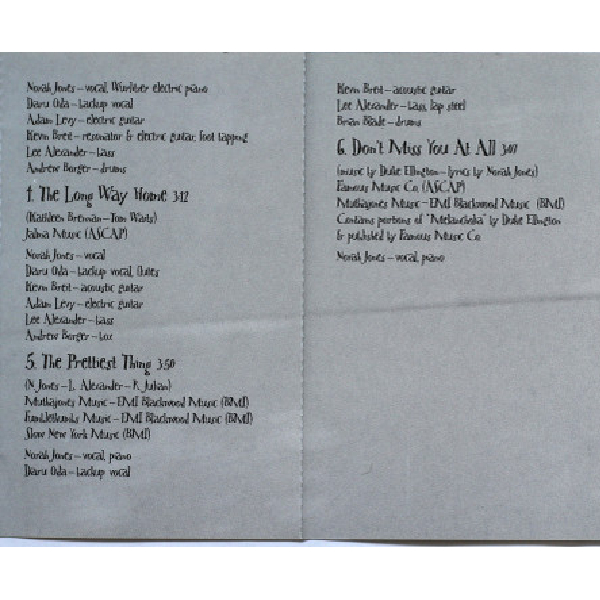 Norah Jones – vocal, Wurlitzer electric piano
Daru Oda – backup vocal
Adam Levy – electric guitar
Kevin Breit – resonator & electric guitar, foot tapping
Lee Alexander – bass
Andrew Borger – drums
1. The Long Way Home 3:12
(Kathleen Brennan – Tom Waits)
Jalma Music (ASCAP)
Norah Jones – vocal
Daru Oda – backup vocal, flutes
Kevin Breit – acoustic guitar
Adam Levy – electric guitar
Lee Alexander – bass
Andrew Borger – box
5. The Prettiest Thing 3:50
(N. Jones – L. Alexander – R. Julian)
Muthajones Music – EMI Blackwood Music (BMI)
Fumblethumbs Music – EMI Blackwood Music (BMI)
Slow New York Music (BMI)
Norah Jones – vocal, piano
Daru Oda – backup vocal
Kevin Breit – acoustic guitar
Lee Alexander – bass, lap steel
Brian Blade – drums
6. Don't Miss You At All 3:07
(music by Duke Ellington – lyrics by Norah Jones)
Famous Music Co. (ASCAP)
Muthajones Music – EMI Blackwood Music (BMI)
Contains portions of "Melancholia" by Duke Ellington
& published by Famous Music Co.
Norah Jones – vocal, piano